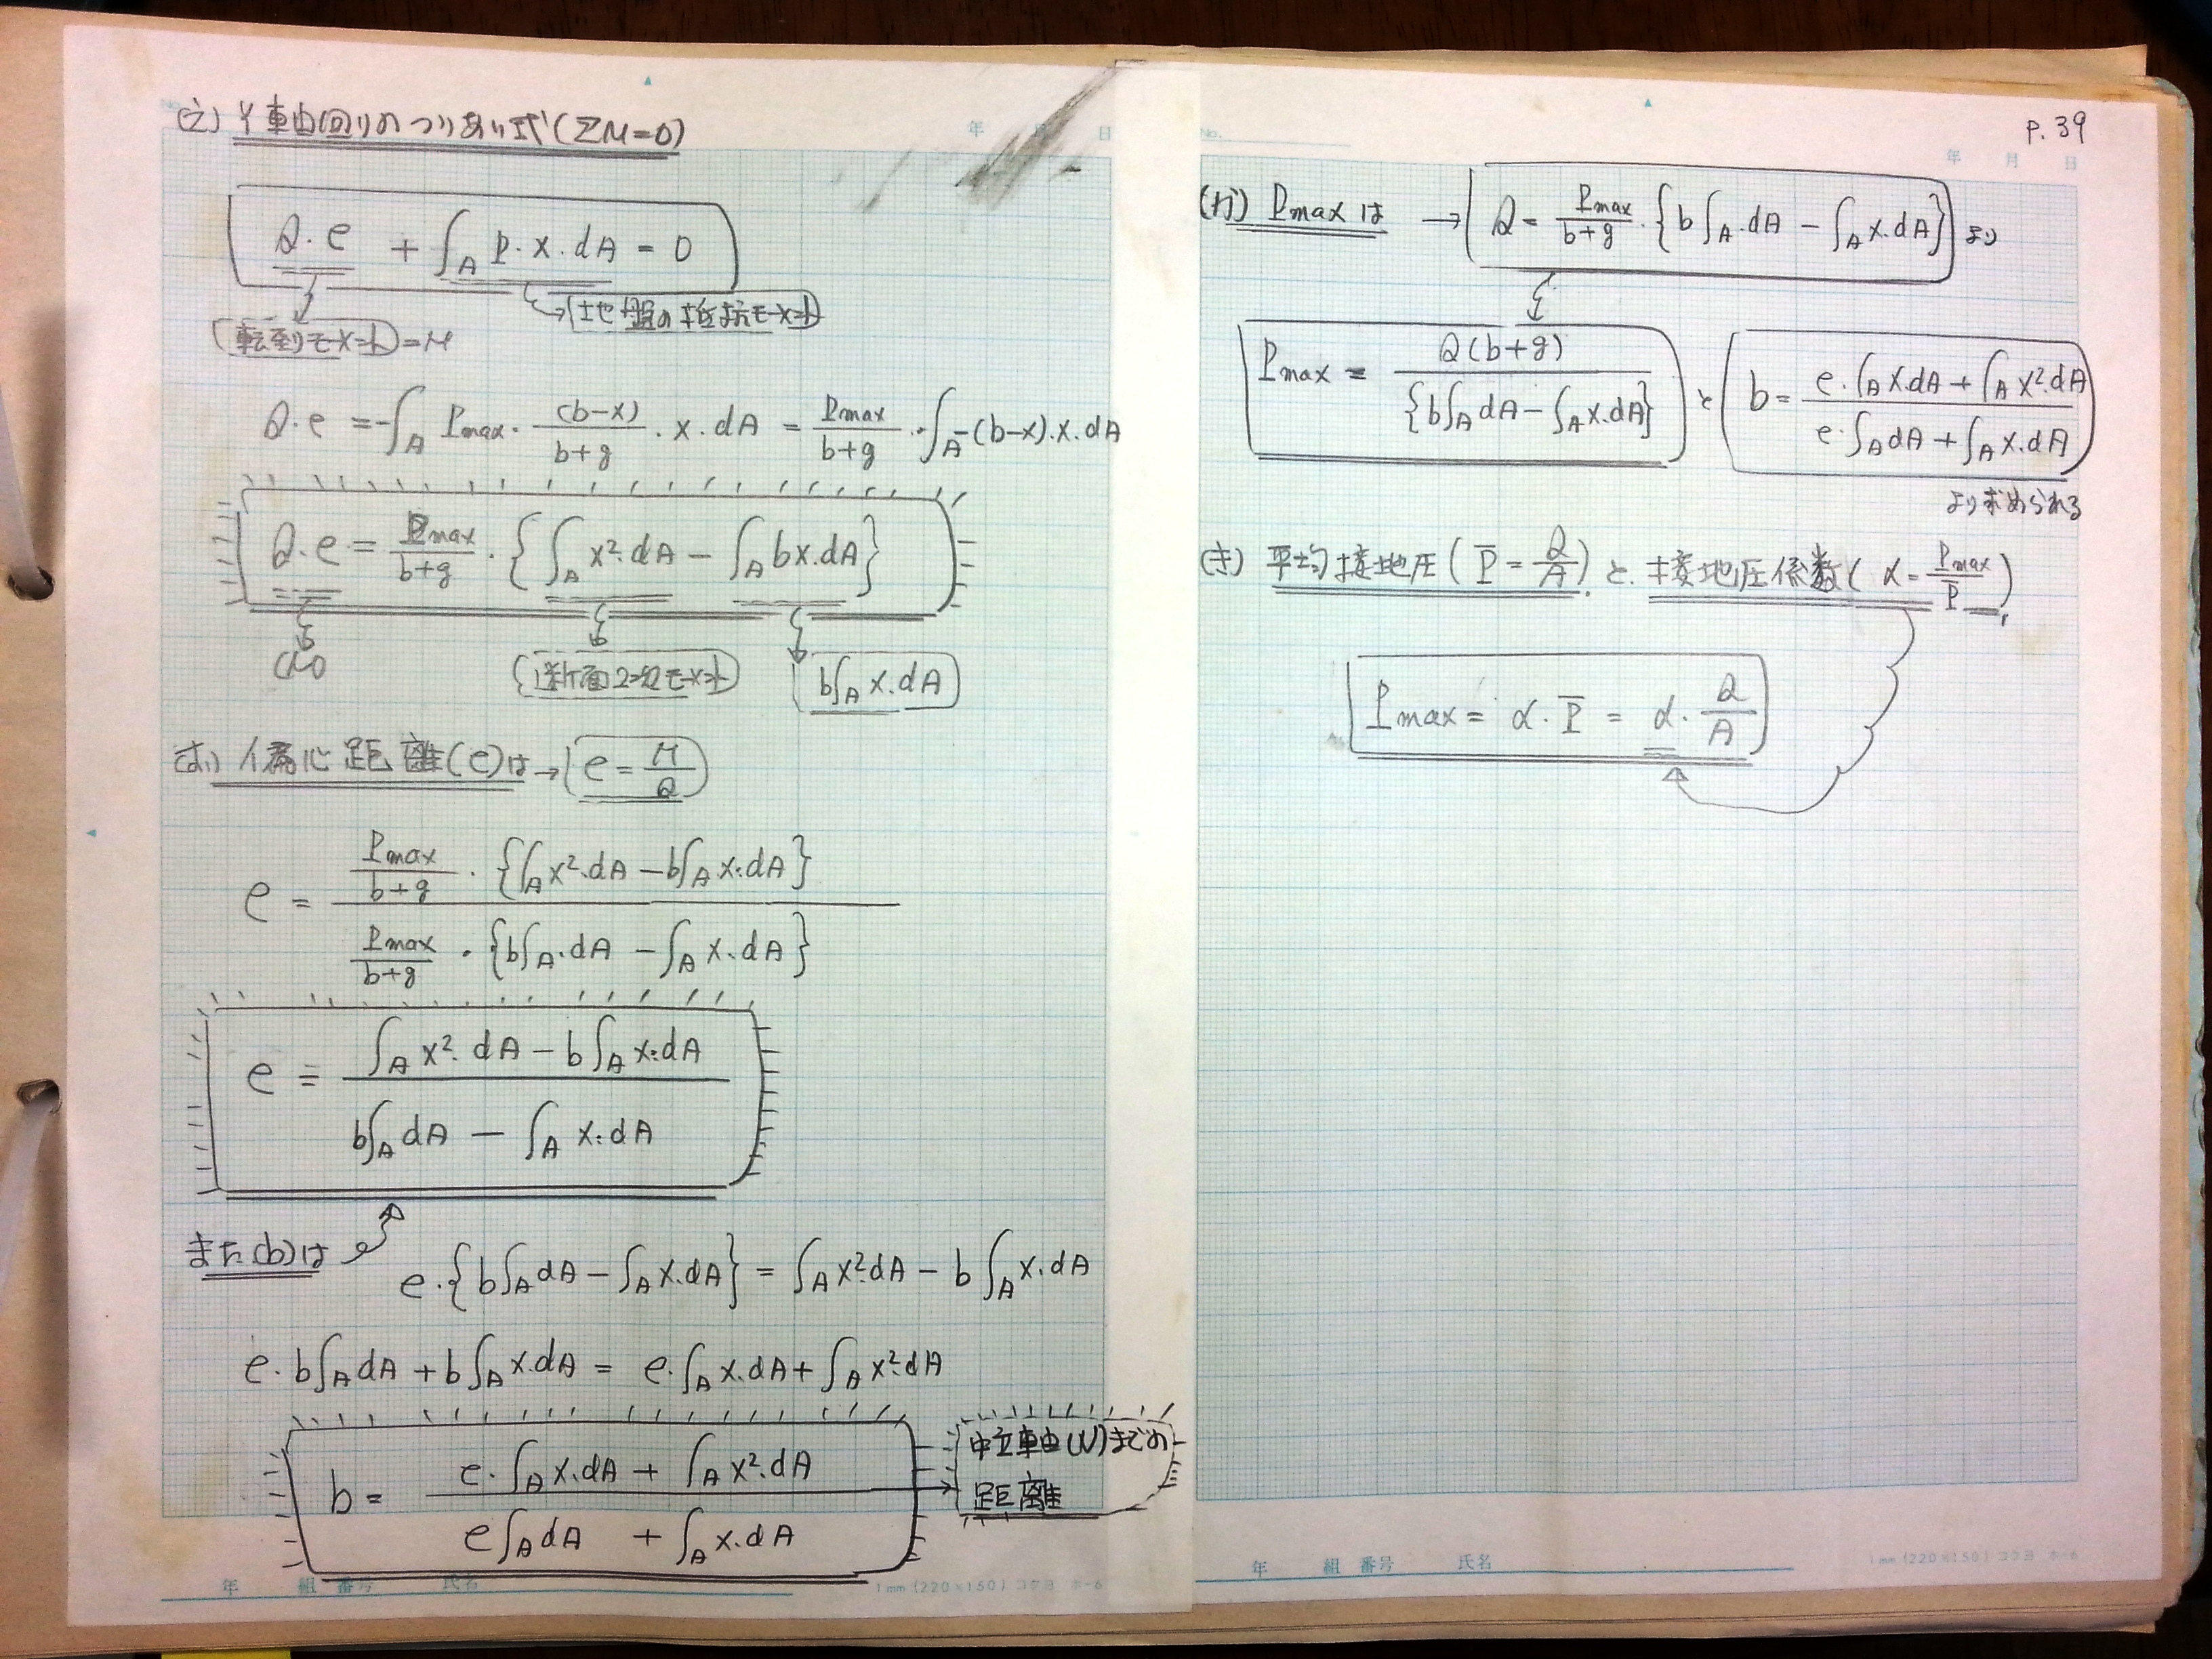 (え) Y軸回りのつりあい式 (ΣM=0)
Q・e + ∫A P・x・dA = 0
転倒モーメント = M
地盤の抵抗モーメント
Q・e = -∫A Pmax・(b-x)/(b+g)・x・dA = Pmax/(b+g)・∫A -(b-x)・x・dA
Q・e = Pmax/(b+g)・{∫A x²・dA - ∫A bx・dA}
断面2次モーメント
b∫A x・dA
(お) 偏心距離(e)は → e = M/Q
e = Pmax/(b+g)・{∫A x²・dA - b∫A x・dA} / Pmax/(b+g)・{b∫A・dA - ∫A x・dA}
e = (∫A x²・dA - b∫A x・dA) / (b∫A dA - ∫A x・dA)
また(b)は
e・{b∫A dA - ∫A x・dA} = ∫A x²・dA - b∫A x・dA
e・b∫A dA + b∫A x・dA = e・∫A x・dA + ∫A x²・dA
b = (e・∫A x・dA + ∫A x²・dA) / (e∫A dA + ∫A x・dA)
中立軸(N)までの
距離
年 組 番号 氏名
1mm (220×150) コクヨ ホ-6
年 月 日
No.
P.39
年 月 日
(か) Pmaxは → Q = Pmax/(b+g)・{b∫A・dA - ∫A x・dA} より
Pmax = Q(b+g) / {b∫A dA - ∫A x・dA} と b = (e・∫A x・dA + ∫A x²・dA) / (e・∫A dA + ∫A x・dA)
より求められる
(き) 平均接地圧 (P̄ = Q/A) と、接地圧係数 (α = Pmax/P̄)
Pmax = α・P̄ = α・Q/A
年 組 番号 氏名
1mm (220×150) コクヨ ホ-6